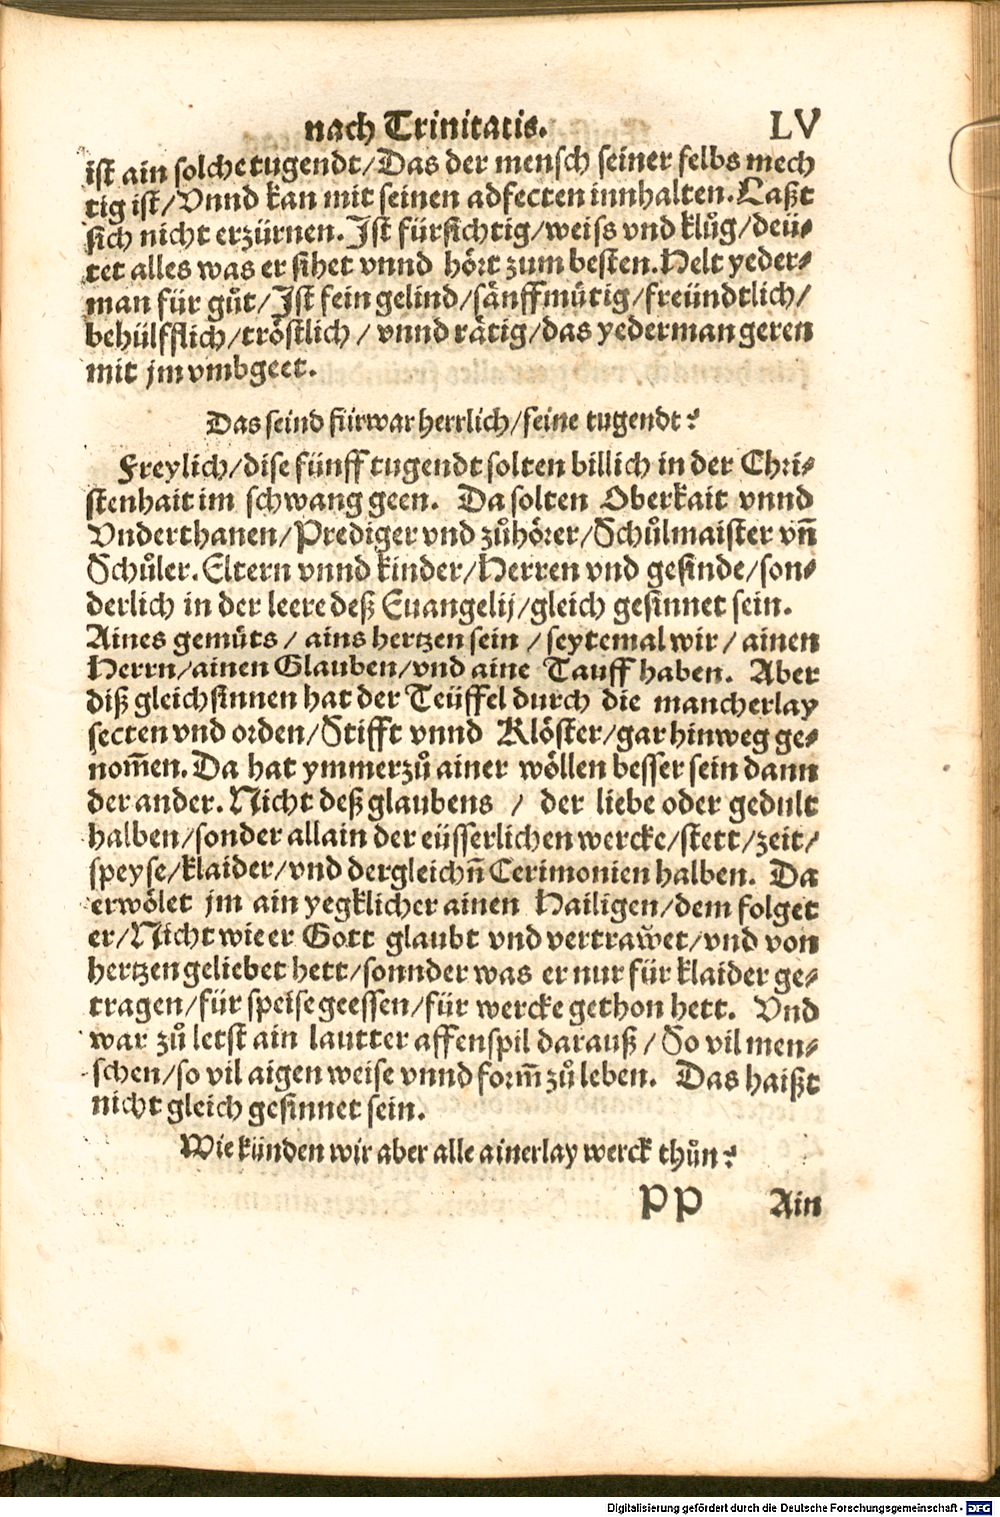 nach Trinitatis. LV
ist ain solche tugendt/Das der mensch seiner selbs mech
tig ist/Vnnd kan mit seinen adfecten innhalten. Laßt
sich nicht erzürnen. Jst fürsichtig/weiss vnd klůg/deü-
tet alles was er sihet vnnd hört zum besten. Helt yeder-
man für gůt/Jst fein gelind/sänffmütig/freündtlich/
behülfflich/tröstlich/ vnnd rätig/das yederman geren
mit jm vmbgeet.
Das seind fürwar herrlich/feine tugendt?
Freylich/dise fünff tugendt solten billich in der Chri-
stenhait im schwang geen. Da solten Oberkait vnnd
Vnderthanen/Prediger vnd zůhörer/Schůlmaister vñ
Schůler. Eltern vnnd kinder/Herren vnd gesinde/son-
derlich in der leere deß Euangelij/gleich gesinnet sein.
Aines gemüts/ ains hertzen sein /seytemal wir/ ainen
Herrn/ainen Glauben/vnd aine Tauff haben. Aber
diß gleichsinnen hat der Teüffel durch die mancherlay
secten vnd orden/Stifft vnnd Klöster/gar hinweg ge-
nom̃en. Da hat ymmerzů ainer wöllen besser sein dann
der ander. Nicht deß glaubens / der liebe oder gedult
halben/sonder allain der eüsserlichen wercke/stett/zeit/
speyse/klaider/vnd dergleichñ Cerimonien halben. Da
erwölet jm ain yegklicher ainen Hailigen/dem folget
er/Nicht wie er Gott glaubt vnd vertrawet/vnd von
hertzen geliebet hett/sonnder was er nur für klaider ge-
tragen/für speise geessen/für wercke gethon hett. Vnd
war zů letst ain lautter affenspil darauß/So vil men-
schen/so vil aigen weise vnnd form̃ zů leben. Das haißt
nicht gleich gesinnet sein.
Wie künden wir aber alle ainerlay werck thůn?
PP Ain
Digitalisierung gefördert durch die Deutsche Forschungsgemeinschaft - DFG